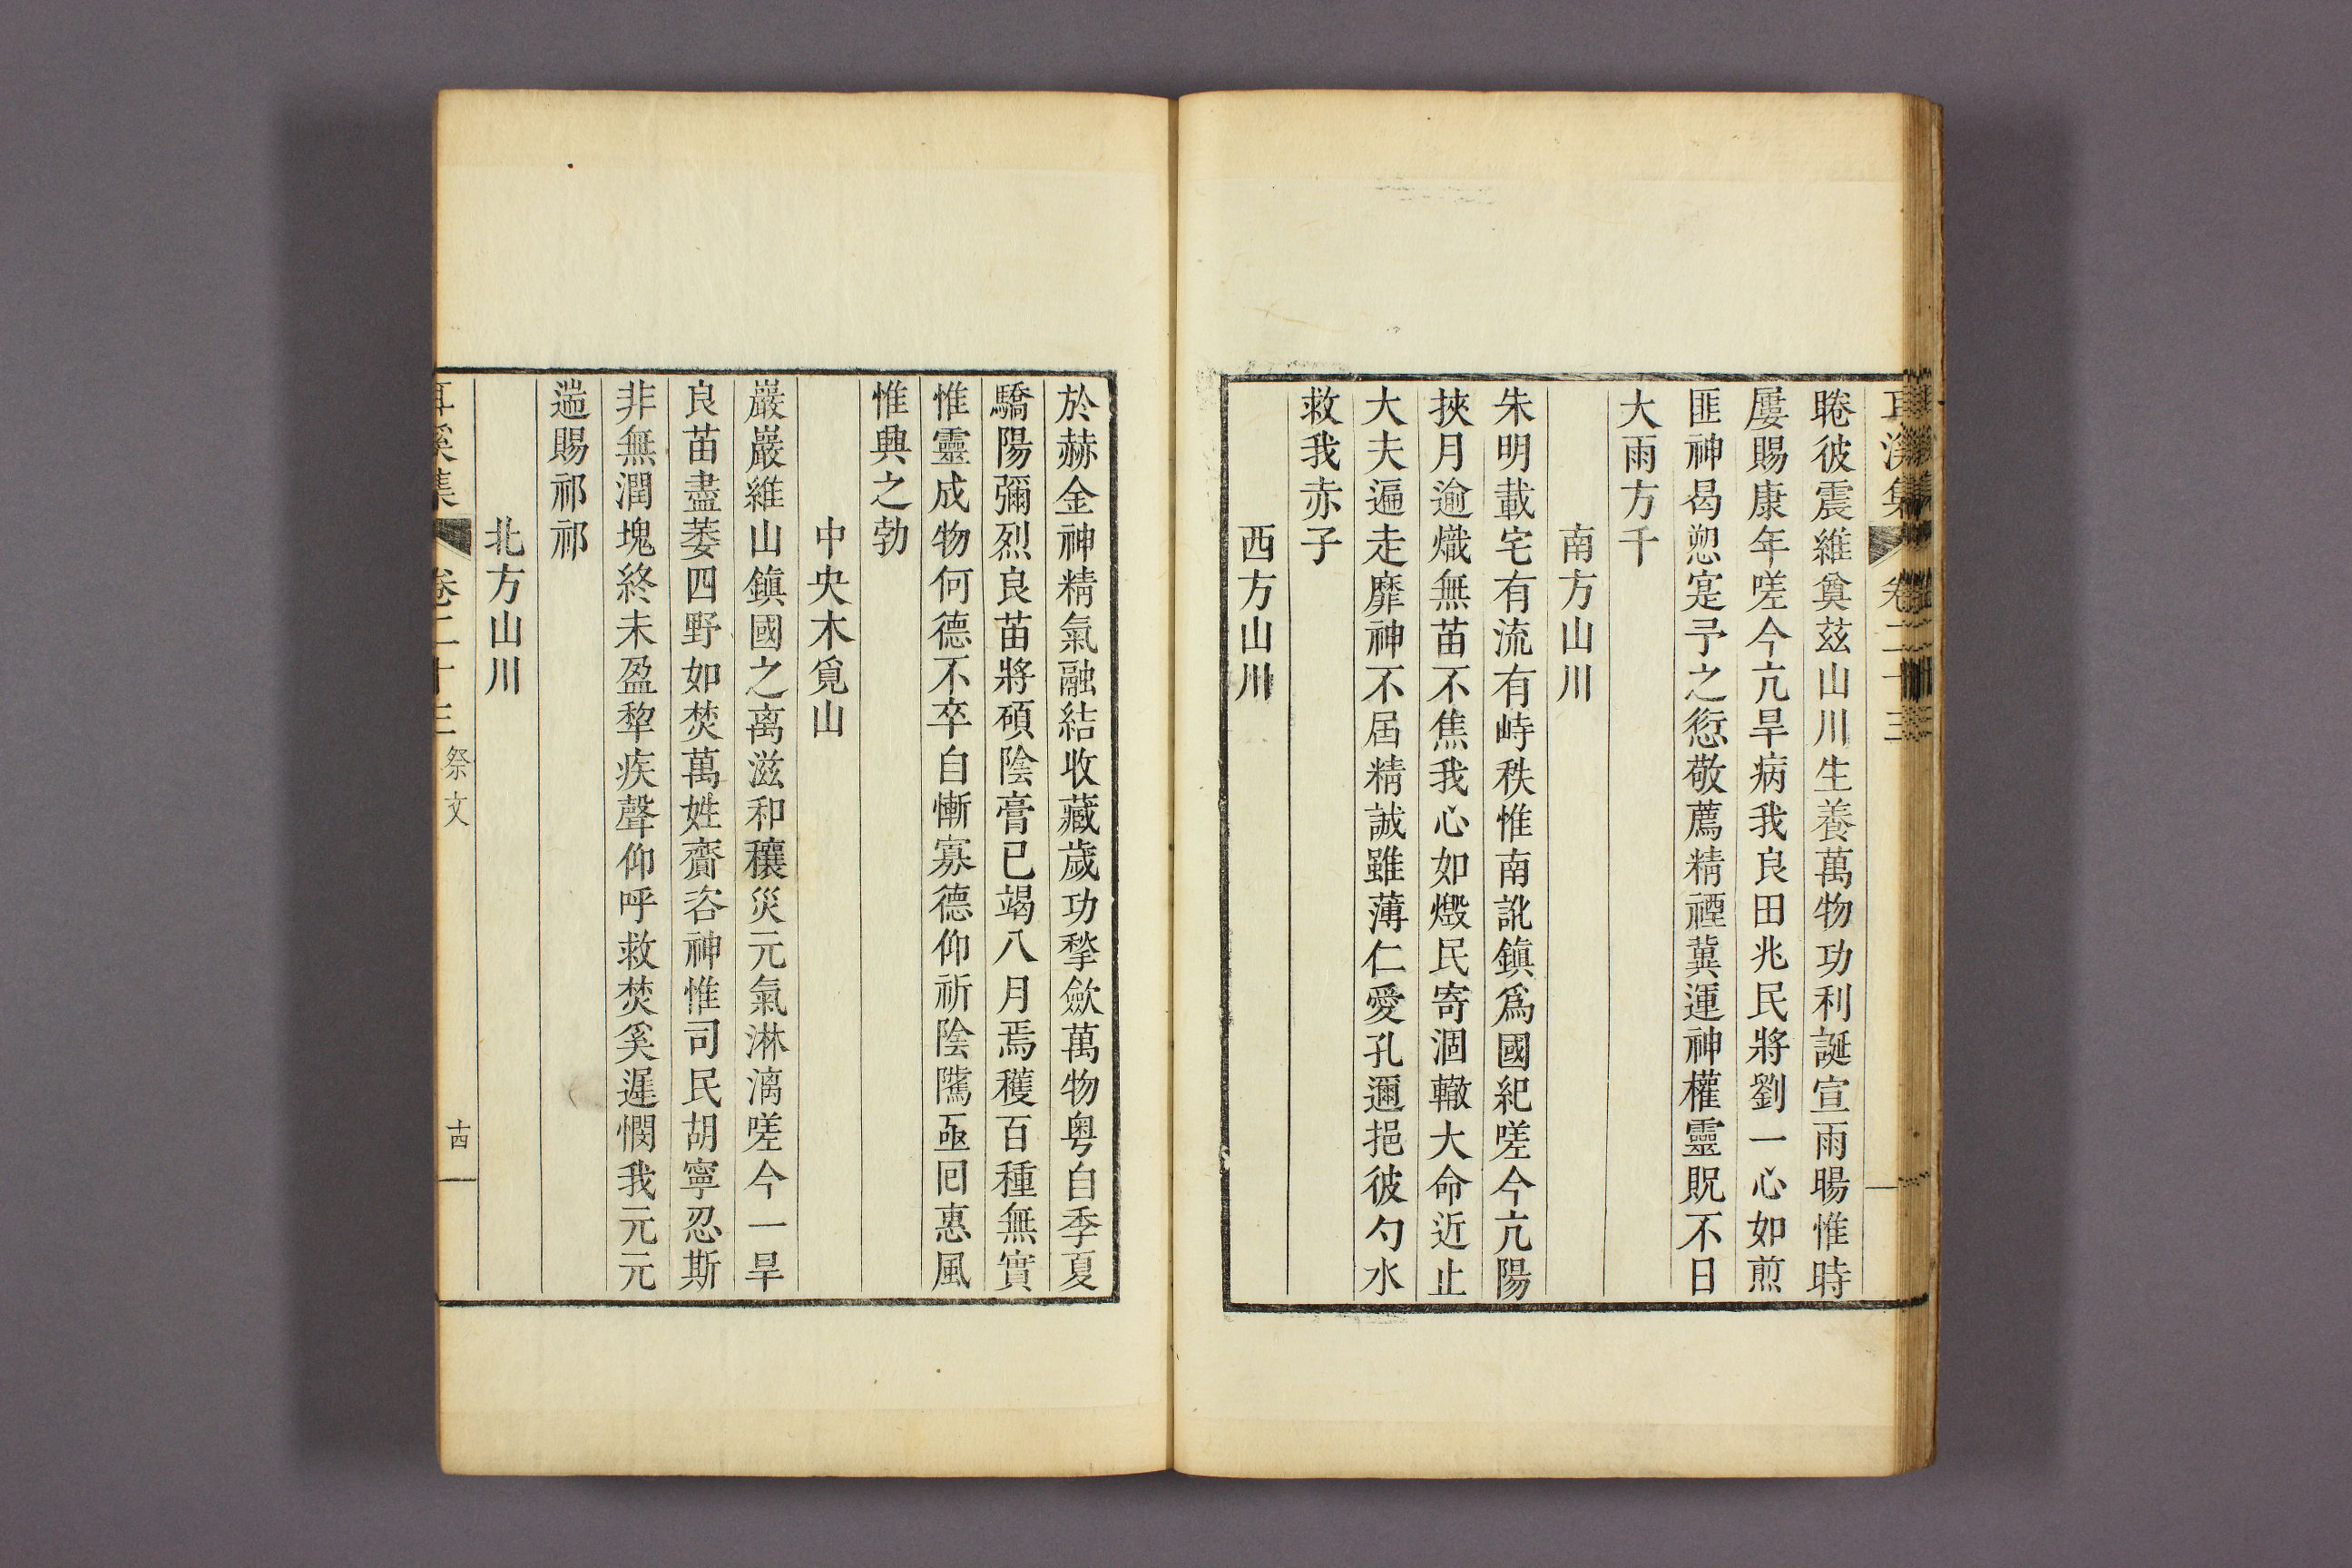 睠彼震維奠茲山川生養萬物功利誕宣雨暘惟時
屢賜康年嗟今亢旱病我良田兆民將劉一心如煎
匪神曷愬寔予之愆敬薦精禋冀運神權靈貺不日
大雨方千
南方山川
朱明載宅有流有峙秩惟南訛鎭爲國紀嗟今亢陽
挾月逾熾無苗不焦我心如燬民寄涸轍大命近止
大夫遍走靡神不屆精誠雖薄仁愛孔邇挹彼勺水
救我赤子
西方山川
於赫金神精氣融結收藏歲功揫斂萬物粤自季夏
驕陽彌烈良苗將碩陰膏已竭八月焉穫百種無實
惟靈成物何德不卒自慚寡德仰祈陰隲亟回惠風
惟興之勃
中央木覓山
巖巖維山鎭國之离滋和穰災元氣淋漓嗟今一旱
良苗盡萎四野如焚萬姓齎咨神惟司民胡寧忍斯
非無潤塊終未盈犂疾聲仰呼救焚奚遲憫我元元
遄賜祁祁
北方山川
耳溪集 卷二十三 祭文 十四